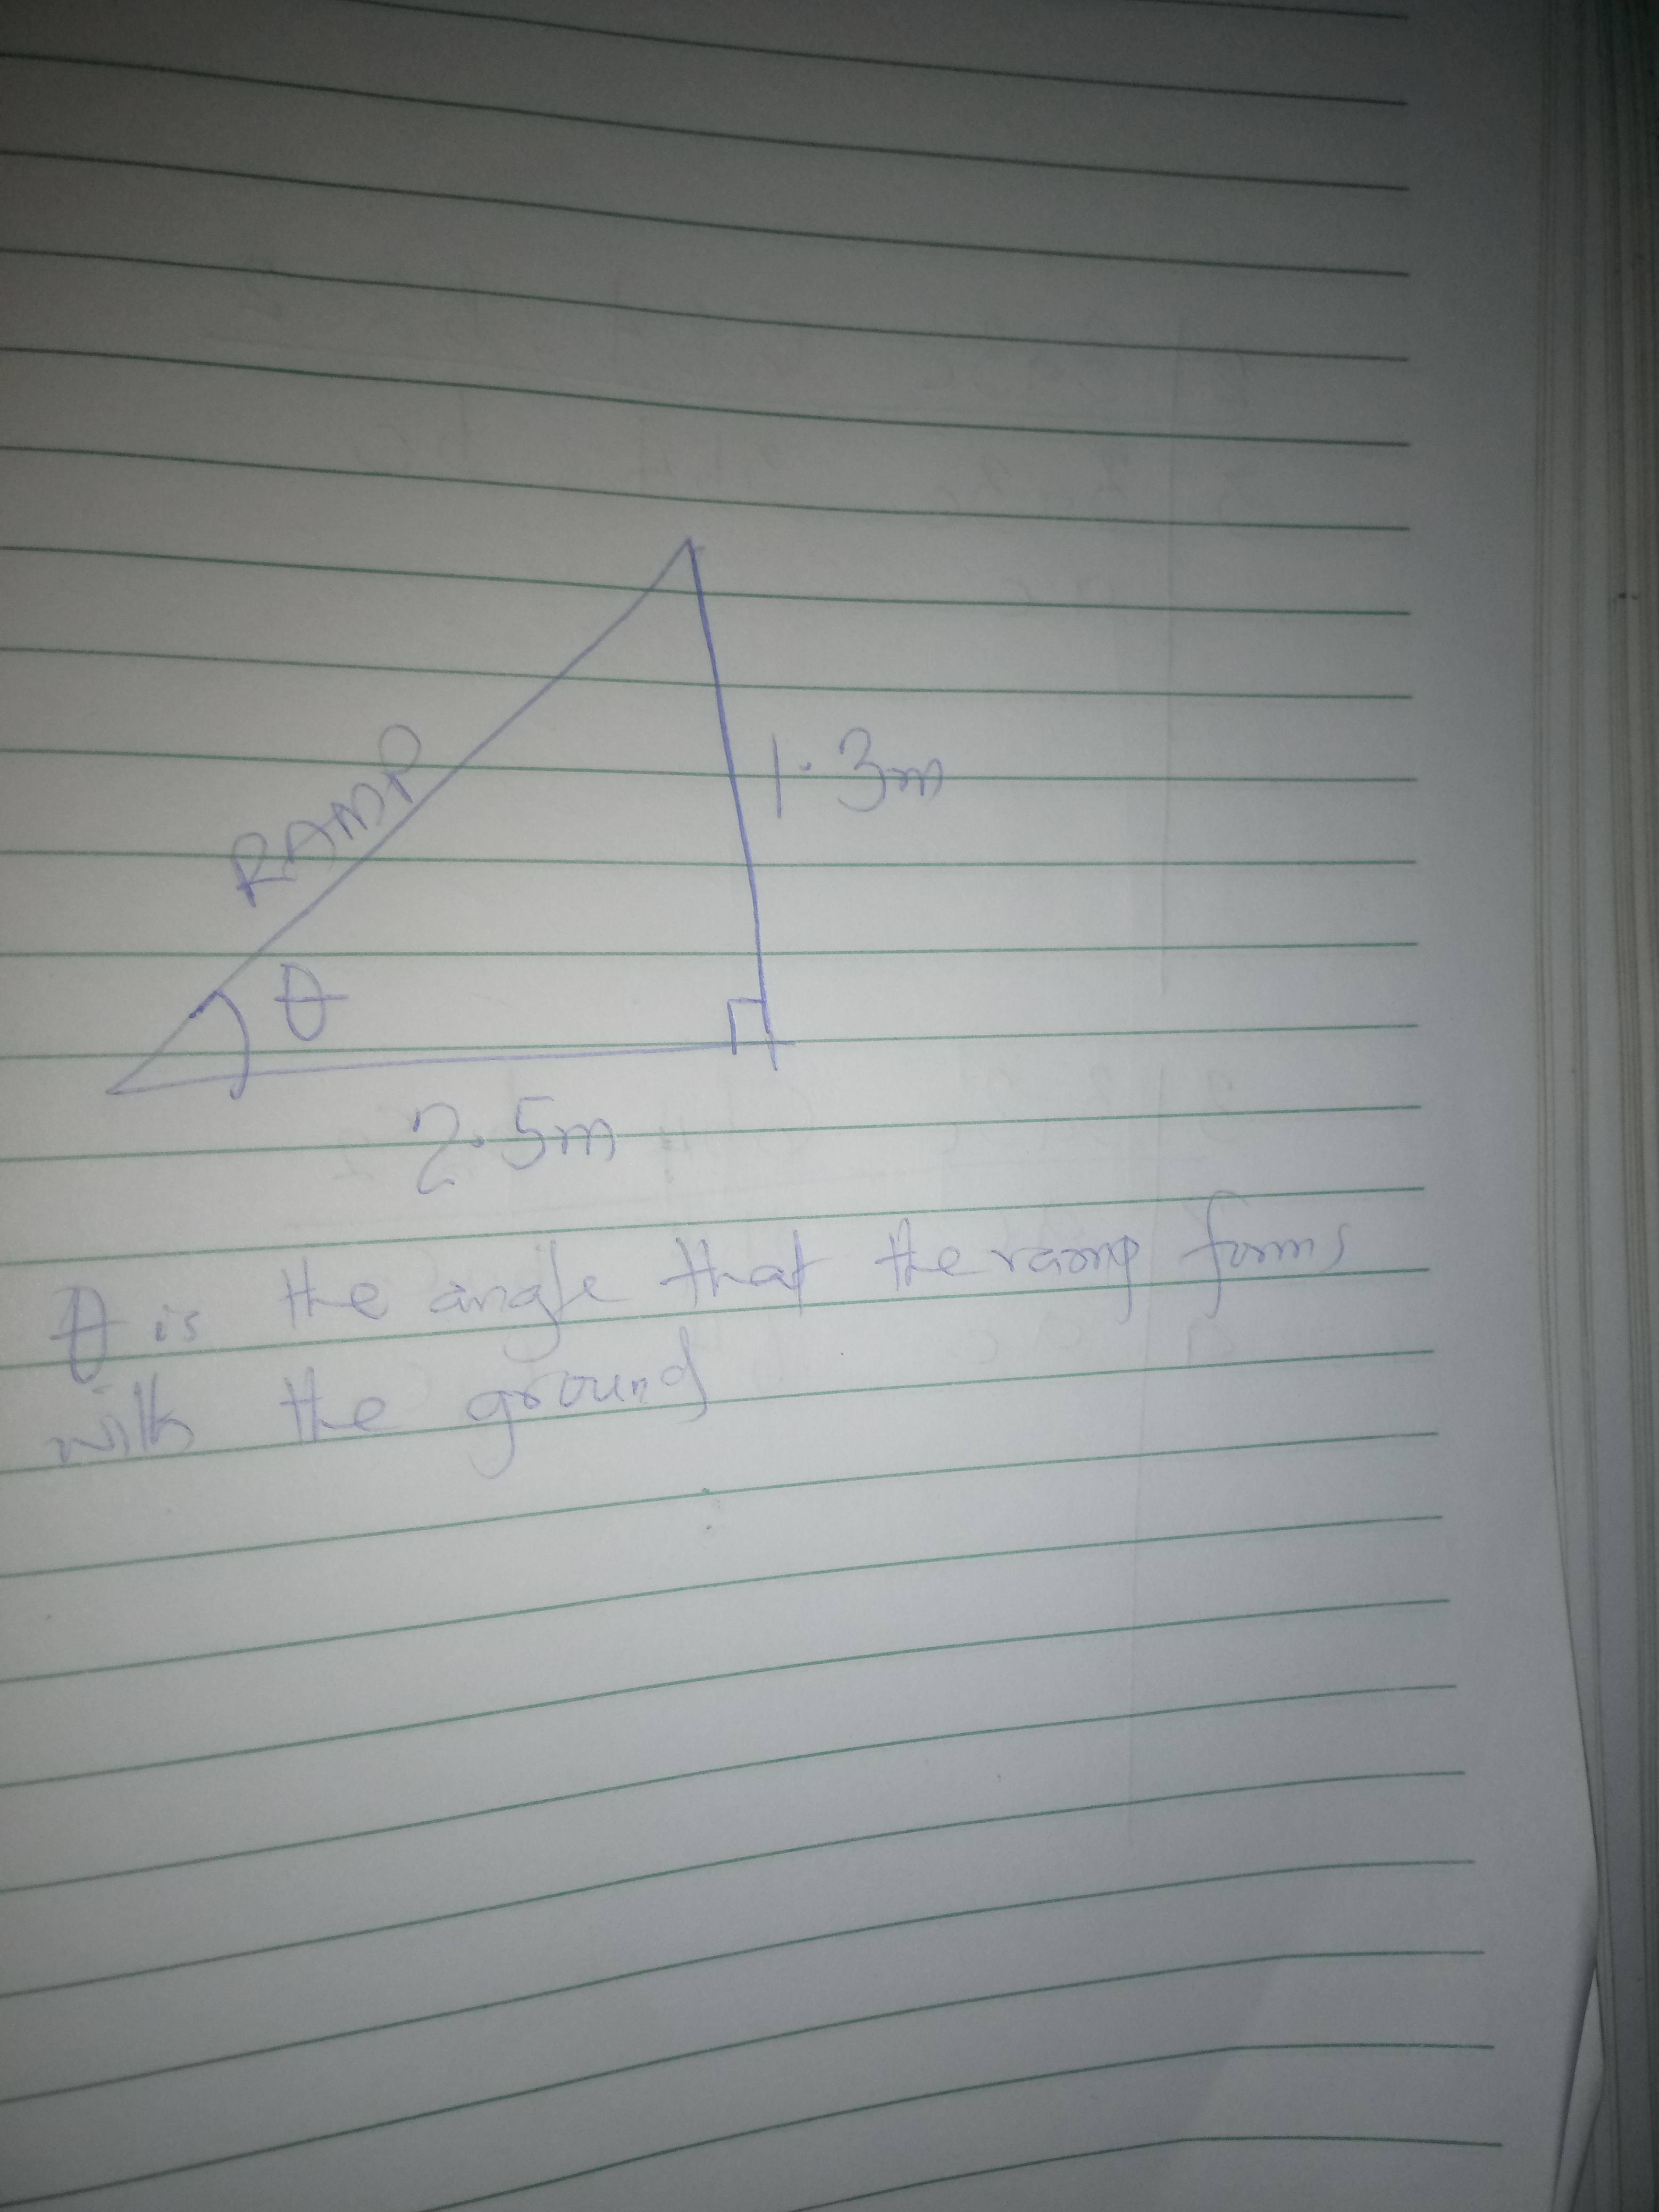 RAMP
1.3m
θ
2.5m
θ is the angle that the ramp forms
with the ground